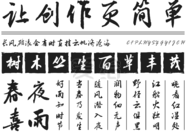 让创作更简单
长风破浪会有时直挂云帆济沧海
树木丛生百草丰茂
春夜喜雨
好雨知时节
当春乃发生
随风潜入夜
润物细无声
野径云俱黑
江船火独明
晓看红湿处
花重锦官城